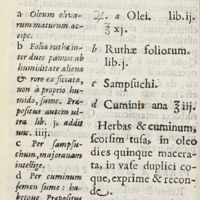 a Oleum oliua-
rum maturum ac-
cipe.
b Folia ruthæ in-
ter duos pannos ab
humiditate aliena
& rore ex siccata,
non à proprio hu-
mido, sume. Præ-
positus autem ul-
tra lib. j. addit
unc. iiij.
c Per sampsu-
chum, majoranam
intellige.
d Per cuminum
semen sume: ha-
betque Præpositus
a Olei. lib. ij.
℥ xj.
b Ruthæ foliorum.
lib. j.
c Sampsuchi.
d Cumini ana ℥ iij.
Herbas & cuminum,
seorsim tusa, in oleo
dies quinque macera-
ta, in vase duplici co-
que, exprime & recon-
de.